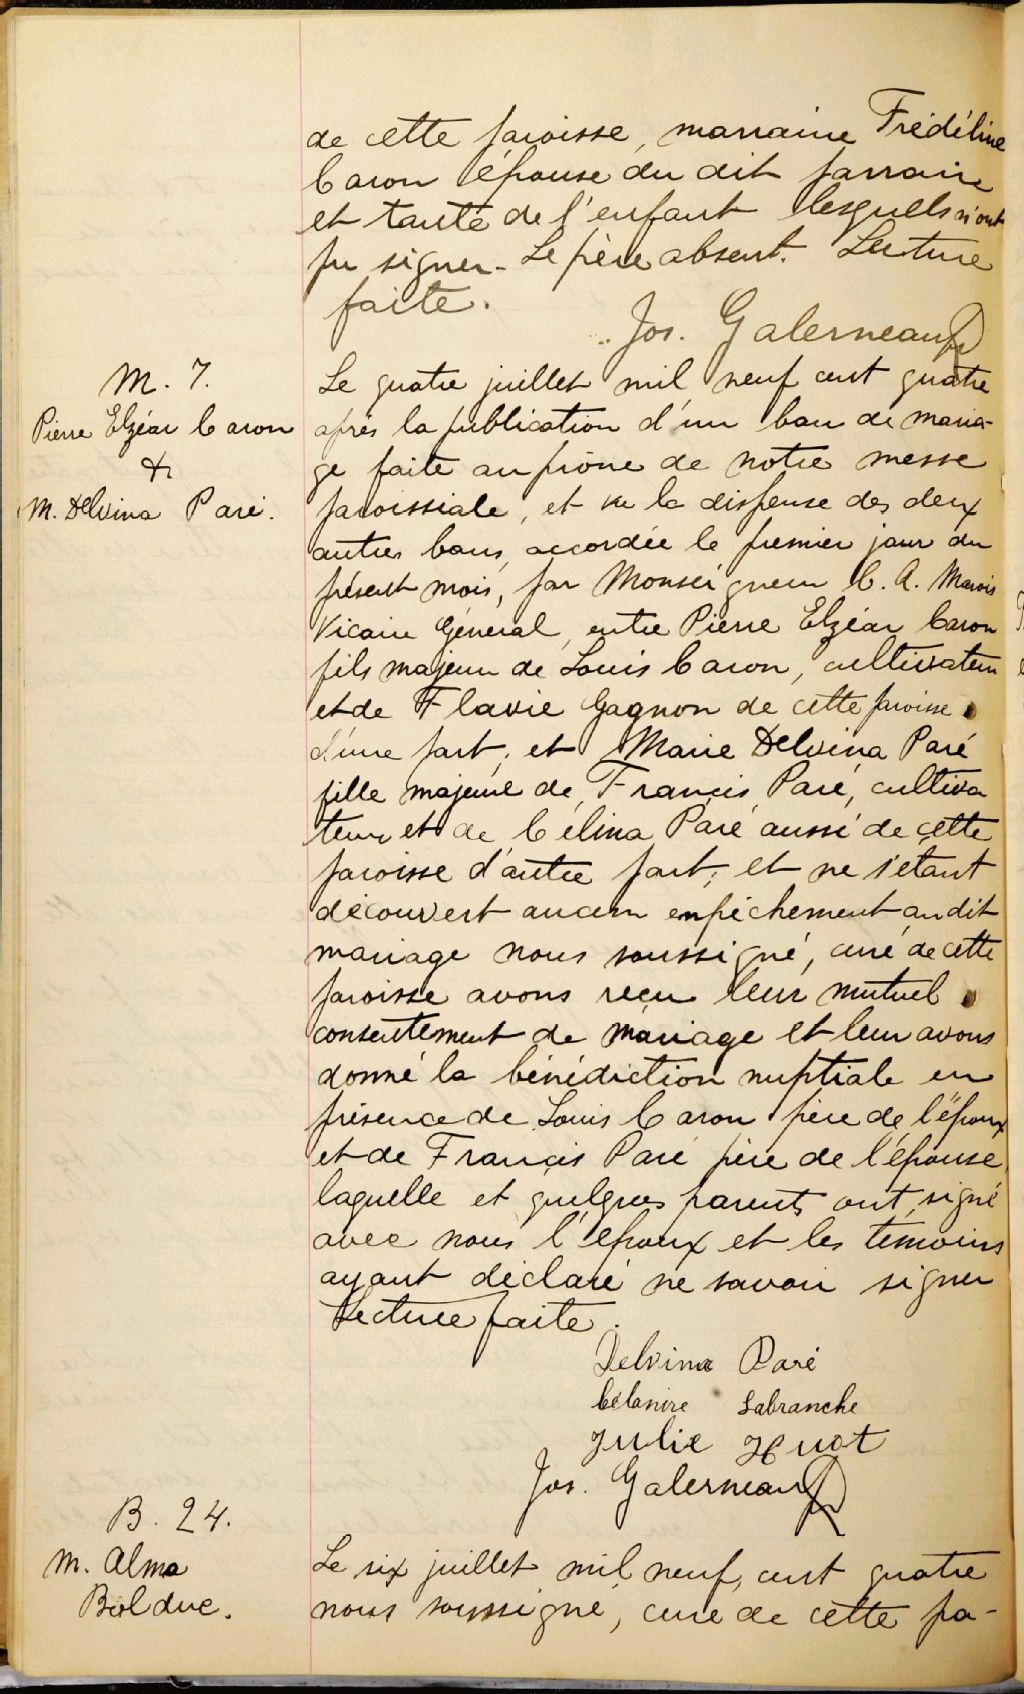 de cette paroisse, marraine Frédéline
Caron épouse du dit parrain
et tante de l'enfant lesquels n'ont
pu signer - Le père absent. Lecture
faite.
Jos. Galerneau Ptr
M. 7.
Pierre Elzéar Caron
&
M. Delvina Paré.
Le quatre juillet mil neuf cent quatre
après la publication d'un ban de maria-
ge faite au prône de notre messe
paroissiale, et vu la dispense des deux
autres bans, accordée le premier jour du
présent mois, par Monseigneur C. A. Marois
Vicaire Général, entre Pierre Elzéar Caron
fils majeur de Louis Caron, cultivateur
et de Flavie Gagnon de cette paroisse
d'une part; et Marie Delvina Paré
fille majeure de Francis Paré, cultiva
teur et de Célina Paré aussi de cette
paroisse d'autre part; et ne s'étant
découvert aucun enpêchement au dit
mariage nous soussigné, curé de cette
paroisse avons reçu leur mutuel
consentement de mariage et leur avons
donné la bénédiction nuptiale en
présence de Louis Caron père de l'époux
et de Francis Paré père de l'épouse,
laquelle et quelques parents ont signé
avec nous l'époux et les témoins
ayant déclaré ne savoir signer
Lecture faite.
Delvina Paré
Célanire Labranche
Julie Huot
Jos. Galerneau Ptr
B. 24.
M. Alma
Bolduc.
Le six juillet mil neuf cent quatre
nous soussigné, curé de cette pa-